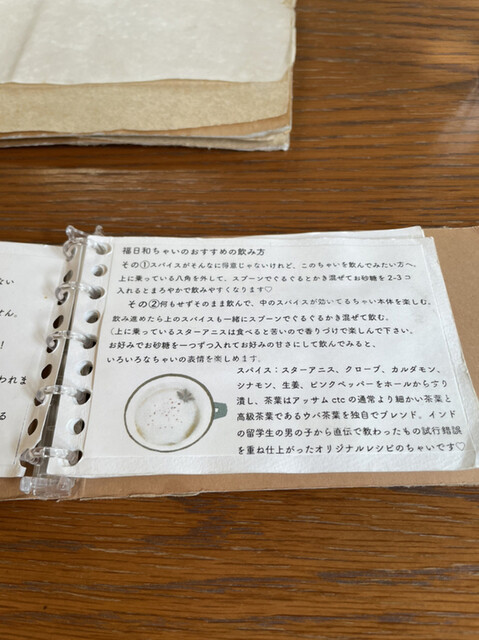 福日和ちゃいのおすすめの飲み方
その①スパイスがそんなに得意じゃないけれど、このちゃいを飲んでみたい方へ。
上に乗っている八角を外して、スプーンでぐるぐるとかき混ぜてお砂糖を2-3コ
入れるとまろやかで飲みやすくなります♡
その②何もせずそのまま飲んで、中のスパイスが効いてるちゃい本体を楽しむ。
飲み進めたら上のスパイスも一緒にスプーンでぐるぐるかき混ぜて飲む。
(上に乗っているスターアニスは食べると苦いので香りづけで楽しんで下さい。
お好みでお砂糖を一つずつ入れてお好みの甘さにして飲んでみると、
いろいろなちゃいの表情を楽しめます。
スパイス:スターアニス、クローブ、カルダモン、
シナモン、生姜、ピンクペッパーをホールからすり
潰し、茶葉はアッサム ctc の通常より細かい茶葉と
高級茶葉であるウバ茶葉を独自でブレンド。インド
の留学生の男の子から直伝で教わったもの試行錯誤
を重ね仕上がったオリジナルレシピのちゃいです♡
ない
せん。
!
われま
る